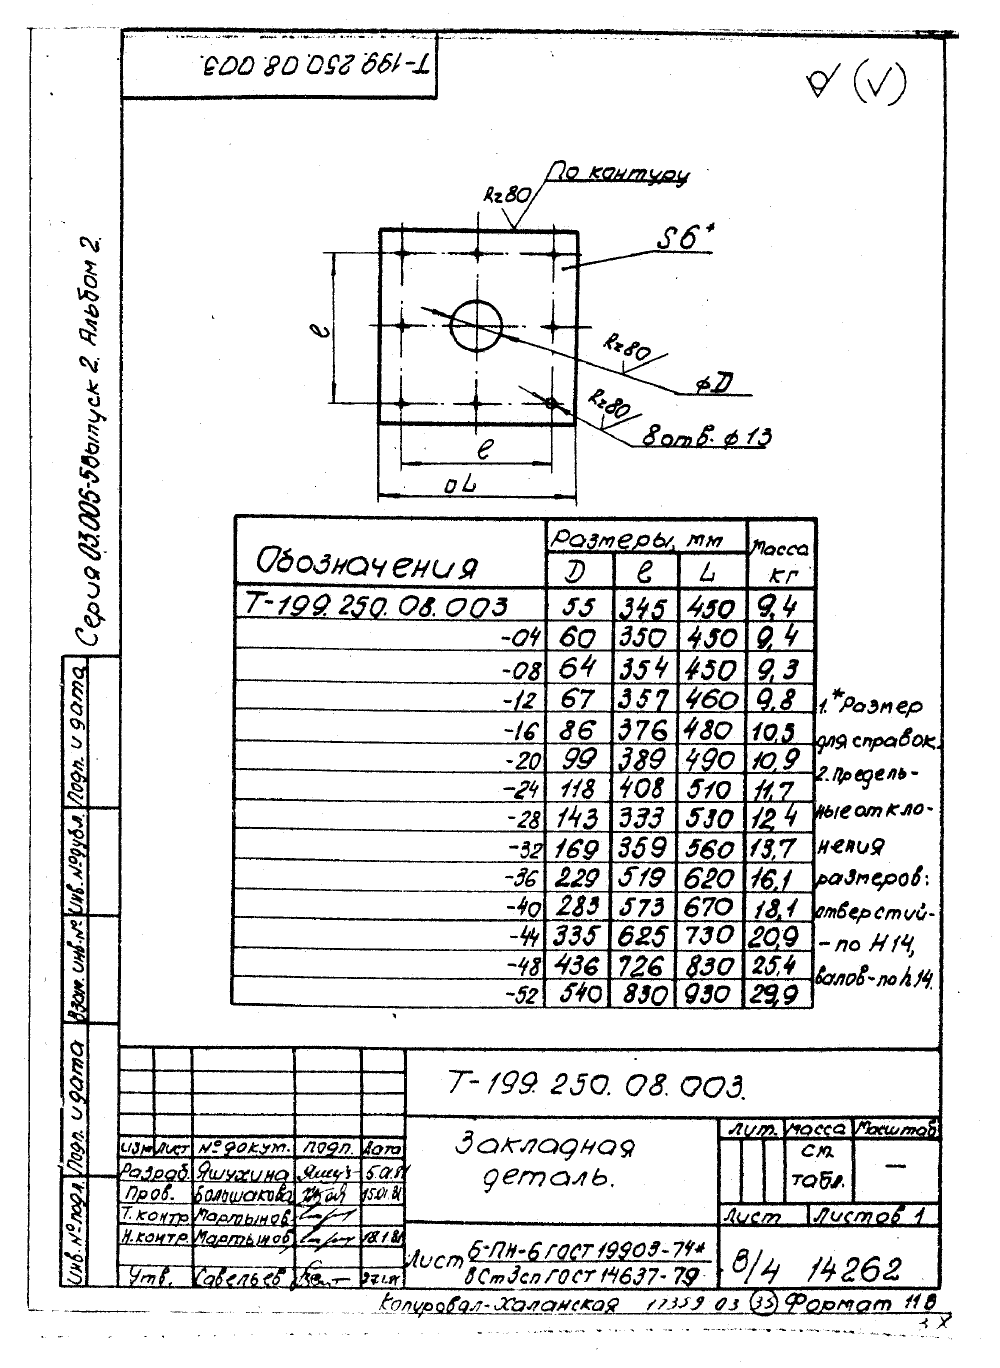 Т-199.250.08.003.
√ (√)
По контуру
Rz80
S6*
ℓ
Rz80
⌀D
Rz80
8 отв. ⌀13
ℓ
□L
Серия 03.005-5 Выпуск 2. Альбом 2.
Обозначения | Размеры, мм | Масса кг
D | ℓ | L
Т-199.250.08.003 | 55 | 345 | 450 | 9,4
-04 | 60 | 350 | 450 | 9,4
-08 | 64 | 354 | 450 | 9,3
-12 | 67 | 357 | 460 | 9,8
-16 | 86 | 376 | 480 | 10,5
-20 | 99 | 389 | 490 | 10,9
-24 | 118 | 408 | 510 | 11,7
-28 | 143 | 333 | 530 | 12,4
-32 | 169 | 359 | 560 | 13,7
-36 | 229 | 519 | 620 | 16,1
-40 | 283 | 573 | 670 | 18,1
-44 | 335 | 625 | 730 | 20,9
-48 | 436 | 726 | 830 | 25,4
-52 | 540 | 830 | 930 | 29,9
1.*Размер
для справок.
2. Предель-
ные откло-
нения
размеров:
отверстий-
-по H14,
валов-по h14.
Подп. и дата
Инв.№дубл.
Взам.инв.№
Подп. и дата
Инв.№подл.
Т-199.250.08.003.
Изм Лист №докум. Подп. Дата
Разраб. Яшухина
Пров. Большакова 15.01.81
Т.контр Мартынов
Н.контр. Мартынов 18.1.81
Утв. Савельев
Закладная
деталь.
Лит. Масса Масштаб
См. табл. —
Лист Листов 1
Лист Б-ПН-6 ГОСТ 19903-74*
ВСт3сп ГОСТ 14637-79
В/4 14262
Копировал-Халанская 17359 03 (35) Формат 11В